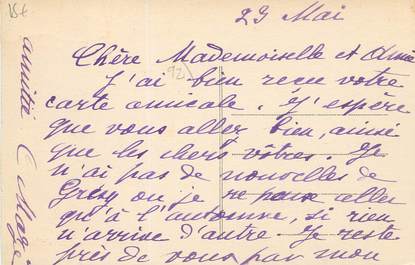 23 Mai
Chère Mademoiselle et Amie
J'ai bien reçu votre
carte amicale. J'espère
que vous allez bien, ainsi
que les chers vôtres. Je
n'ai pas de nouvelles de
Gray ou je ne peux aller
qu'à l'automne, si rien
n'arrive d'autre. Je reste
près de vous par mon
amitié